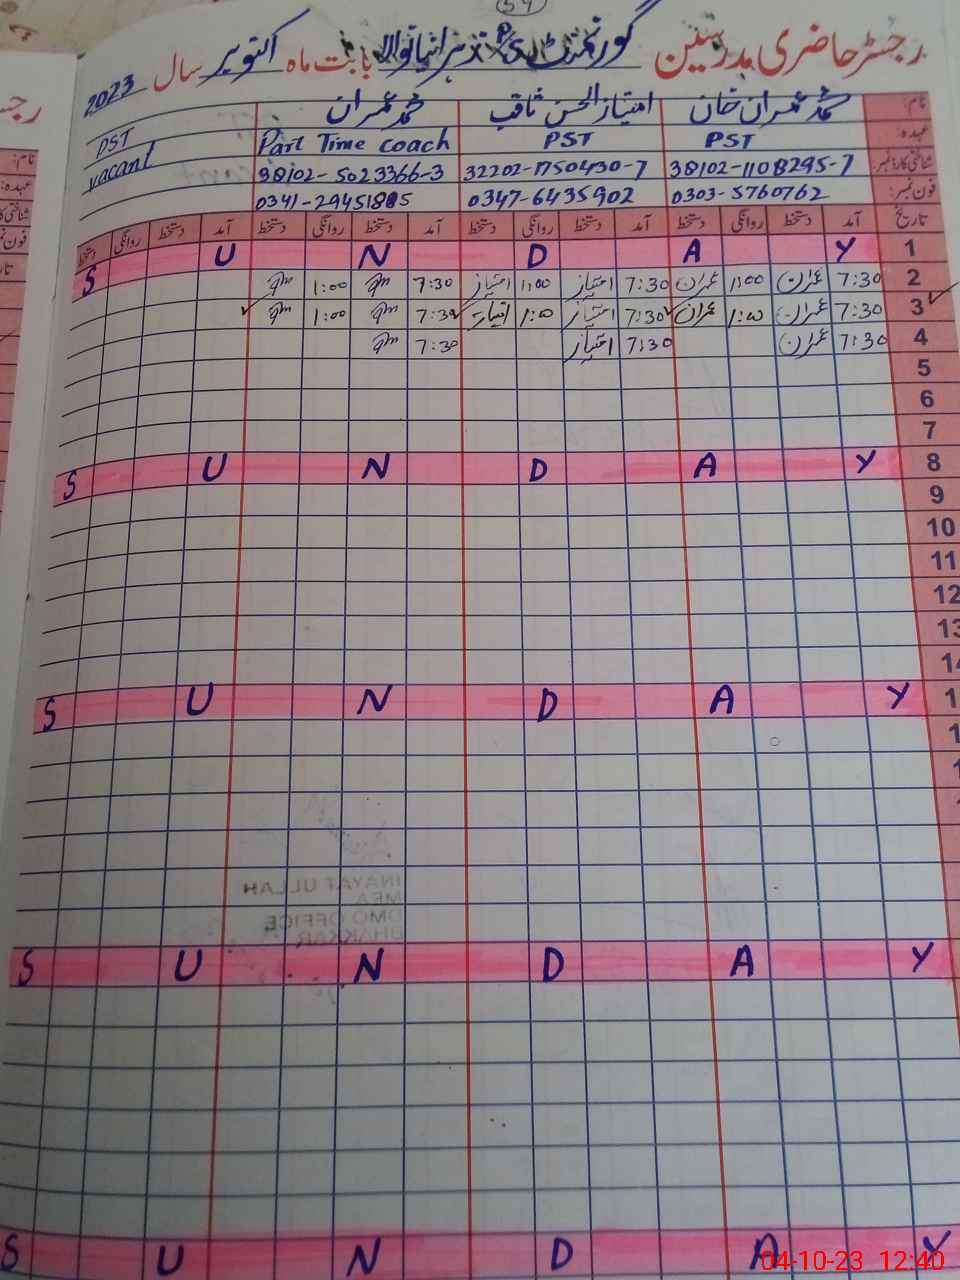 54
رجسٹر حاضری مدرسین گورنمنٹ بابت ماہ اکتوبر سال 2023
نام: محمد عمران خان امتیاز الحسن ثاقب محمد عمران
عہدہ: PST PST Part Time coach PST
شناختی کارڈ نمبر 38102-1108295-7 32202-1750430-7 38102-5023366-3 vacant
فون نمبر: 0303-5760762 0347-6435902
تاریخ آمد دستخط روانگی دستخط آمد دستخط روانگی دستخط آمد دستخط روانگی دستخط آمد دستخط روانگی دستخط
1 S U N D A Y
2 7:30 عمران 1:00 عمران 7:30 امتیاز 1:00 امتیاز 7:30 1:00
3 7:30 عمران 1:00 عمران 7:30 امتیاز 1:00 امتیاز 7:30 1:00
4 7:30 عمران 7:30 امتیاز 7:30
5
6
7
8 S U N D A Y
9
10
11
12
13
14
S U N D A Y
INAYAT ULLAH
MEA
DMO OFFICE
BHAKKAR
S U N D A Y
S U N D A Y
04-10-23 12:40